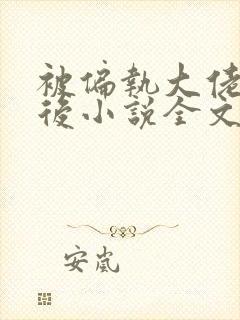 被偏執大佬
後小說全文
安嵐